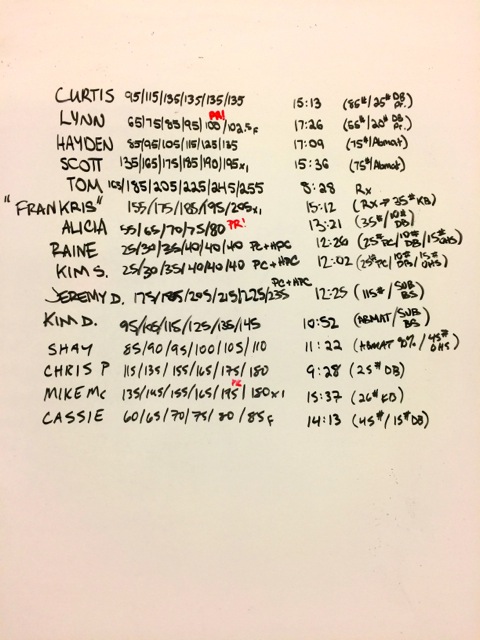 CURTIS 95/115/135/135/135/135 15:13 (85#/25# DB Pr.)
LYNN 65/75/85/95/100 PR!/102.5F 17:26 (55#/20# DB Pr.)
HAYDEN 85/95/105/115/125/135 17:09 (75#/Abmat)
SCOTT 135/165/175/185/190/195x1 15:36 (75#/Abmat)
TOM 165/185/205/225/245/255 8:28 Rx
"FRANKRIS" 155/175/185/195/205x1 15:12 (Rx → 35# KB)
ALICIA 55/65/70/75/80 PR! 13:21 (35#/10# DB)
RAINE 25/30/35/40/40/40 PC+HPC 12:20 (25# PC/10# DB/15# OHS)
KIM S. 25/30/35/40/40/40 PC+HPC 12:02 (25# PC/10# DB/15# OHS)
JEREMY D. 175/185/205/215/225/235 PC+HPC 12:25 (115#/SUB BS)
KIM D. 95/105/115/125/135/145 10:52 (ABMAT/SUB BS)
SHAY 85/90/95/100/105/110 11:22 (ABMAT /45# OHS)
CHRIS P 115/135/155/165/175/180 9:28 (25# DB)
MIKE Mc 135/145/155/165/195 PR/180x1 15:37 (26# KB)
CASSIE 60/65/70/75/80/85F 14:13 (45#/15# DB)